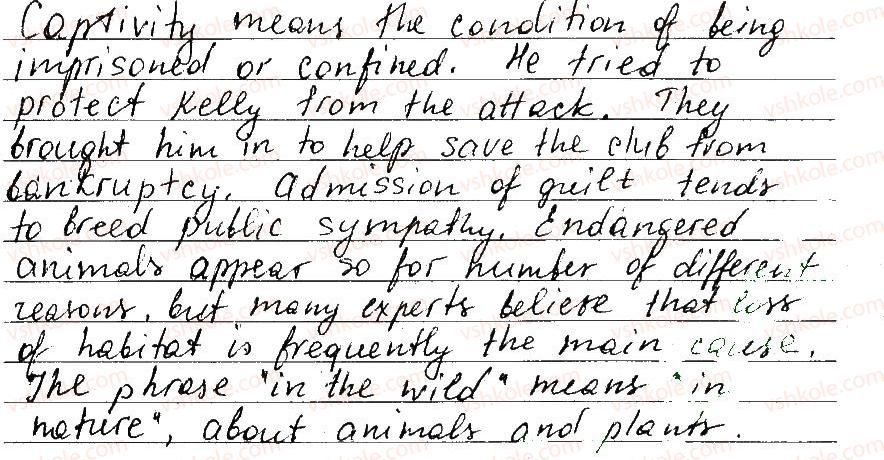 Captivity means the condition of being
imprisoned or confined. He tried to
protect Kelly from the attack. They
brought him in to help save the club from
bankruptcy. Admission of guilt tends
to breed public sympathy. Endangered
animals appear so for number of different
reasons, but many experts believe that loss
of habitat is frequently the main cause.
The phrase "in the wild" means "in
nature", about animals and plants.